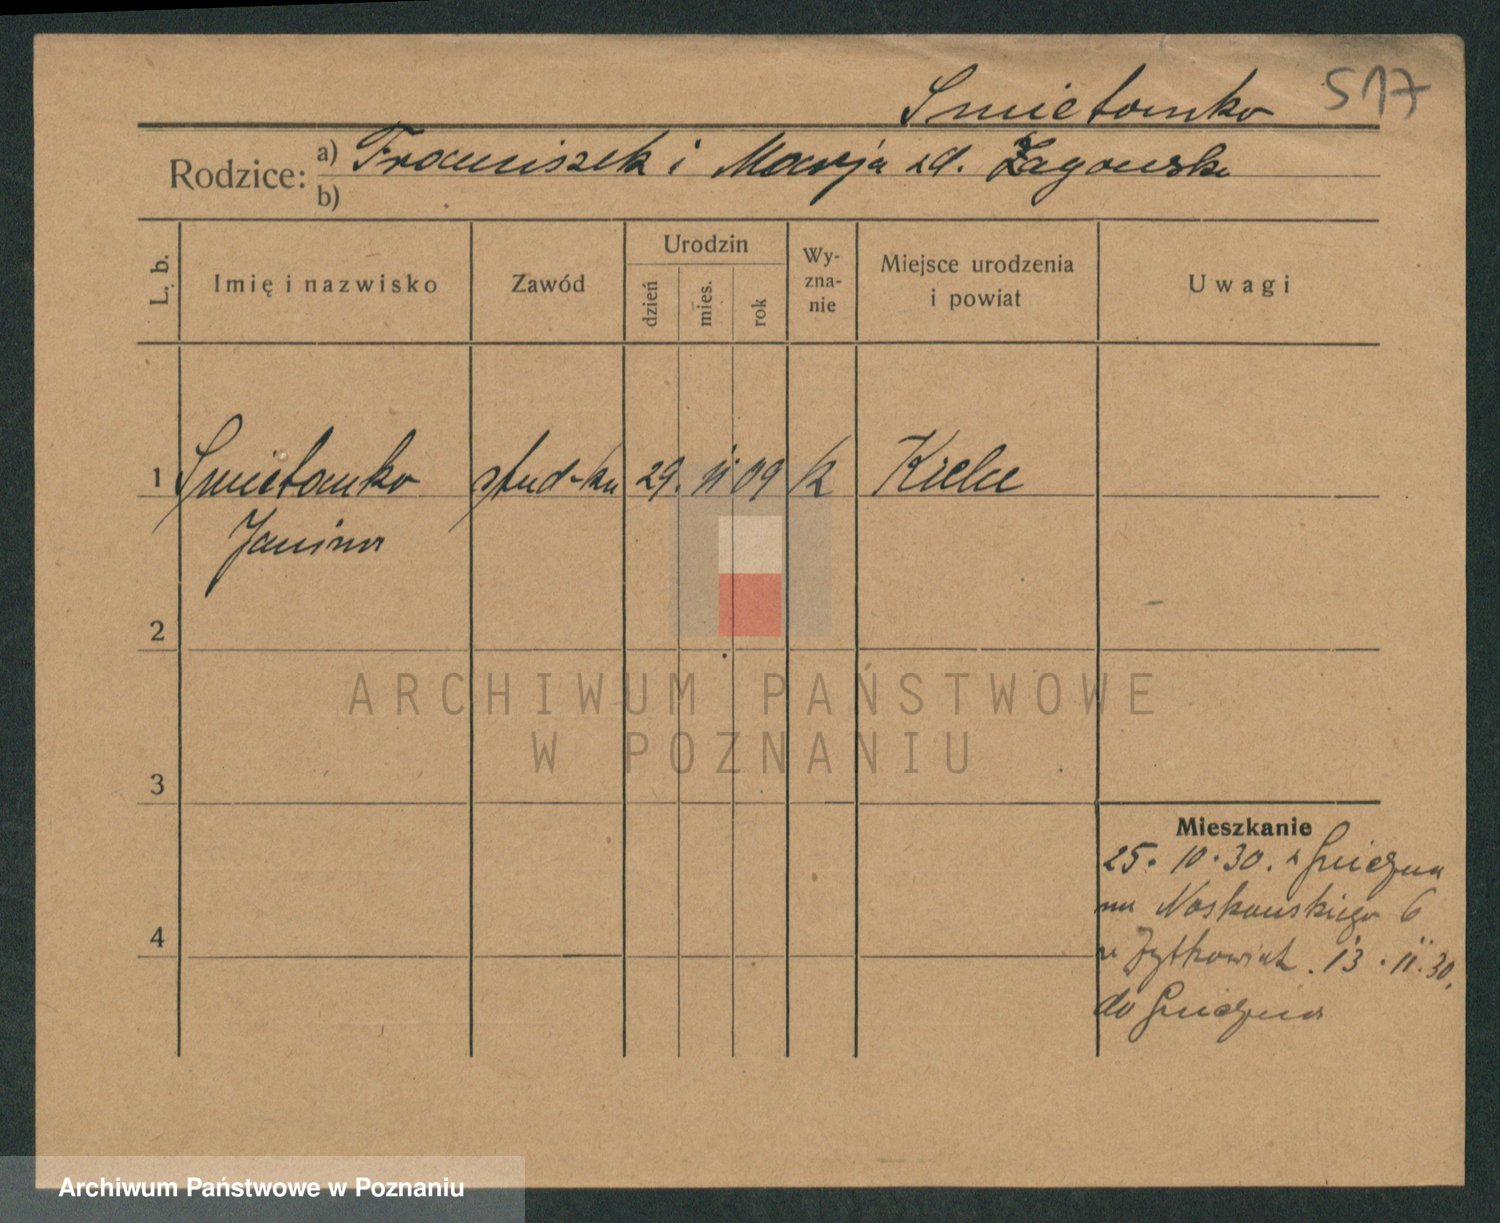 Smietanko 517
Rodzice: a) Franciszek i Marja zd. Zagorska
b)
L. b. Imię i nazwisko Zawód Urodzin dzień mies. rok Wy-zna-nie Miejsce urodzenia i powiat Uwagi
1 Smietanko stud-ka 29. 11 09 k Kielce
Janina
2
ARCHIWUM PAŃSTWOWE
W POZNANIU
3
Mieszkanie
25. 10. 30. z Gniezna
na Noskowskiego 6
4
13. 11. 30.
do Gniezna
Archiwum Państwowe w Poznaniu